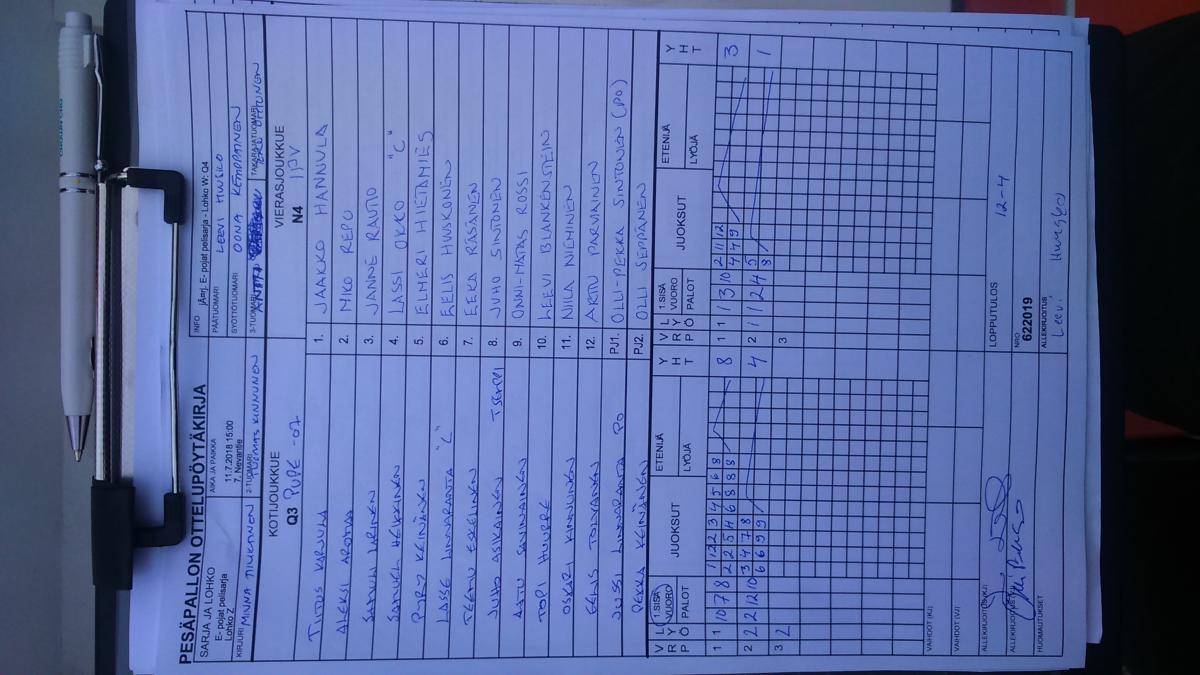 PESÄPALLON OTTELUPÖYTÄKIRJA
SARJA JA LOHKO
E- pojat pelisarja
Lohko Z
AIKA JA PAIKKA
11.7.2018 15:00
7. Nevantie
INFO jÄmj. E- pojat pelisarja - Lohko W: Q4
PÄÄTUOMARI LEEVI HUUSKO
SYÖTTÖTUOMARI OONA KEMPPAINEN
KIRJURI MINNA TIUKTINEN
2-TUOMARI TUOMAS KINNUNEN
3-TUOMARI
TAKARAJATUOMARI
KOTIJOUKKUE
Q3 PUPE -07
VIERASJOUKKUE
N4 IPV
TIITUS KARJULA
1. JAAKKO HANNULA
ALEKSI
2. MIKO REPO
3. JANNE RAUTIO
SAMUEL HEIKKINEN
4. LASSI OKKO "C"
PYRY KEINÄNEN
5. ELMERI HIETAMIES
LASSE LINNARANTA "C"
6. EELIS HUUSKONEN
TEEMU ESKELINEN
7. EEKA RÄSÄNEN
JUHO ASIKAINEN
8. JUHO SINTONEN
AATU SAVINAINEN
9. ONNI-MATIAS ROSSI
TOPI HUURRE
10. LEEVI BLANKENSTEIN
OSKARI KINNUNEN
11. NIILA NIEMINEN
EELIS TOIVANEN
12. ARTTU PARVIAINEN
JUSSI LINNARANTA PO
PJ1. OLLI-PEKKA SINTONEN (PO)
PEKKA KEINÄNEN
PJ2. OLLI SEPPÄNEN
V R P L Y Ö 1.SISÄ VUORO PALOT JUOKSUT ETENIJÄ LYÖJÄ Y H T
V R P L Y Ö 1.SISÄ VUORO PALOT JUOKSUT ETENIJÄ LYÖJÄ Y H T
1 1 10 7 8 1 1 2 2 3 4 5 6 8 8
2 2 5 4 6 8 8 8
1 1 1 3 10 2 11 12 3
4 4 9
2 2 12 10 3 4 7 8 4
6 6 9 9
2 1 1 2 4 5 1
8
3 2
3
VAIHDOT (KJ)
VAIHDOT (VJ)
LOPPUTULOS 12-4
ALLEKIRJOITUS (KJ)
ALLEKIRJOITUS (VJ)
HUOMAUTUKSET
NRO
622019
ALLEKIRJOITUS
Leevi Huusko